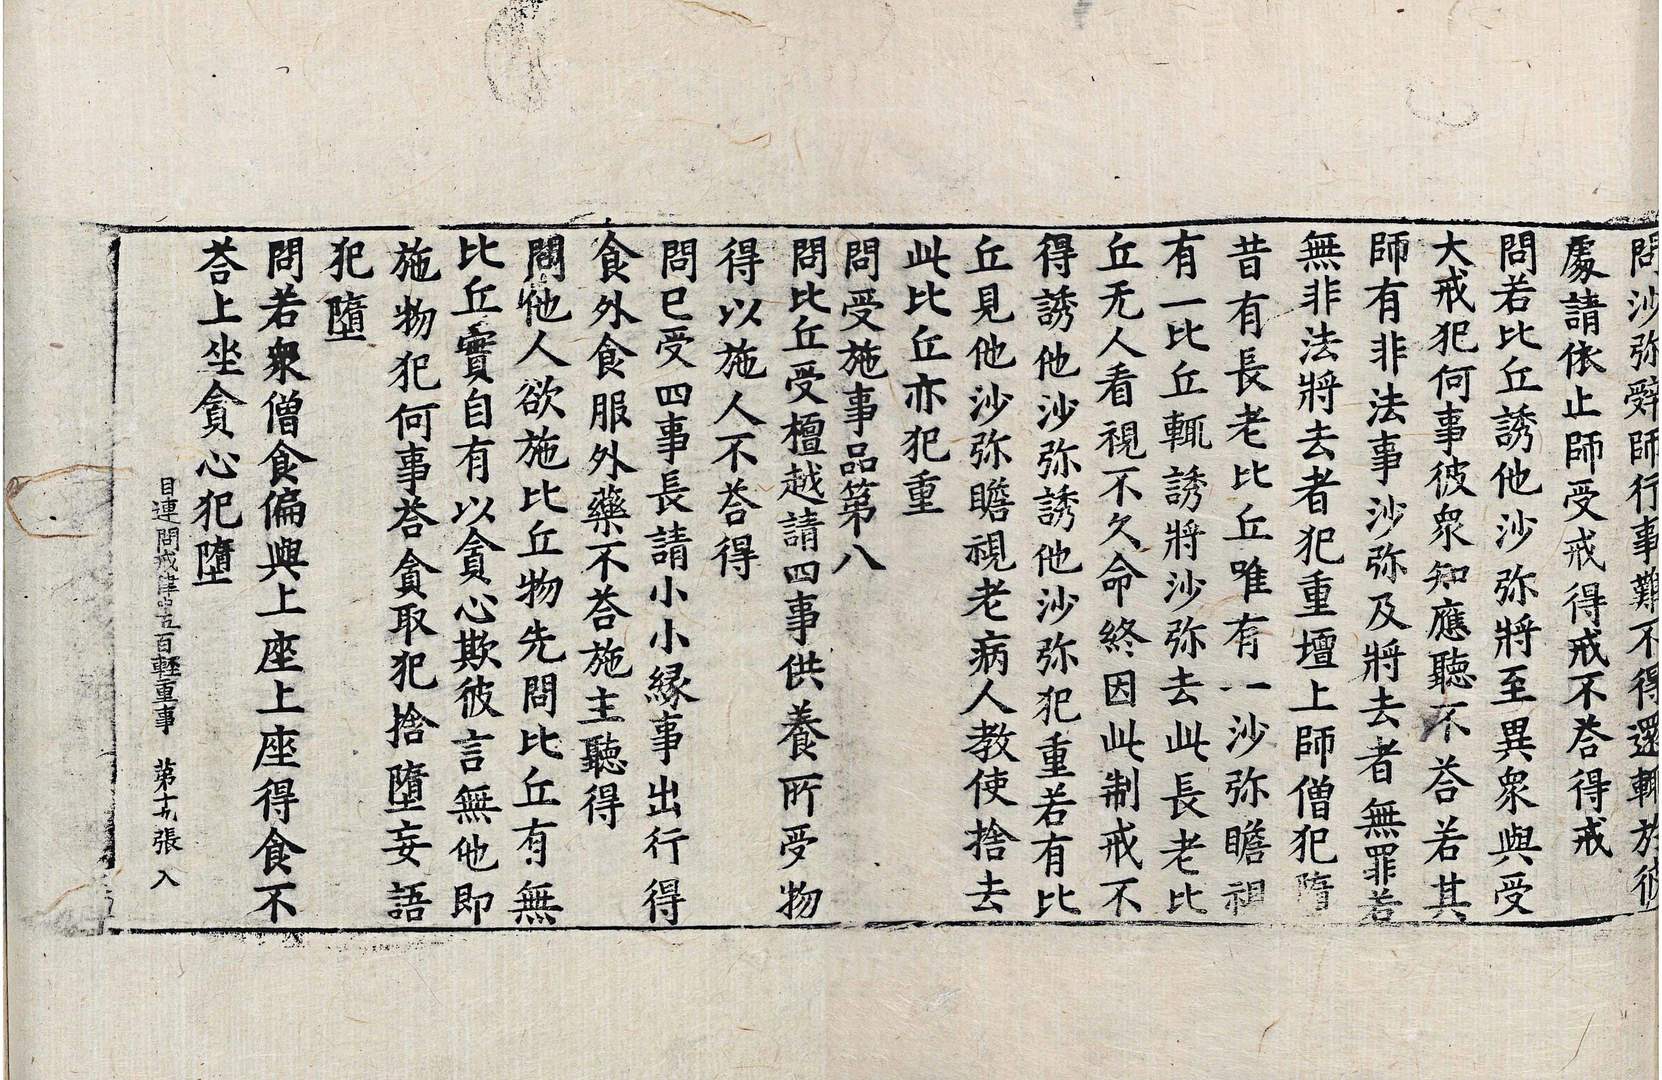 問沙弥辭師行事難不得還輒於彼
處請依止師受戒得戒不荅得戒
問若比丘誘他沙弥將至異衆與受
大戒犯何事彼衆知應聽不荅若其
師有非法事沙弥及將去者無罪若
無非法將去者犯重壇上師僧犯墮
昔有長老比丘唯有一沙弥瞻視
有一比丘輒誘將沙弥去此長老比
丘无人看視不久命終因此制戒不
得誘他沙弥誘他沙弥犯重若有比
丘見他沙弥瞻視老病人教使捨去
此比丘亦犯重
問受施事品第八
問比丘受檀越請四事供養所受物
得以施人不荅得
問已受四事長請小小緣事出行得
食外食服外藥不荅施主聽得
問他人欲施比丘物先問比丘有無
比丘實自有以貪心欺彼言無他即
施物犯何事荅貪取犯捨墮妄語
犯墮
問若衆僧食偏與上座上座得食不
荅上坐貪心犯墮
目連問戒律中五百輕重事 第十九張 入